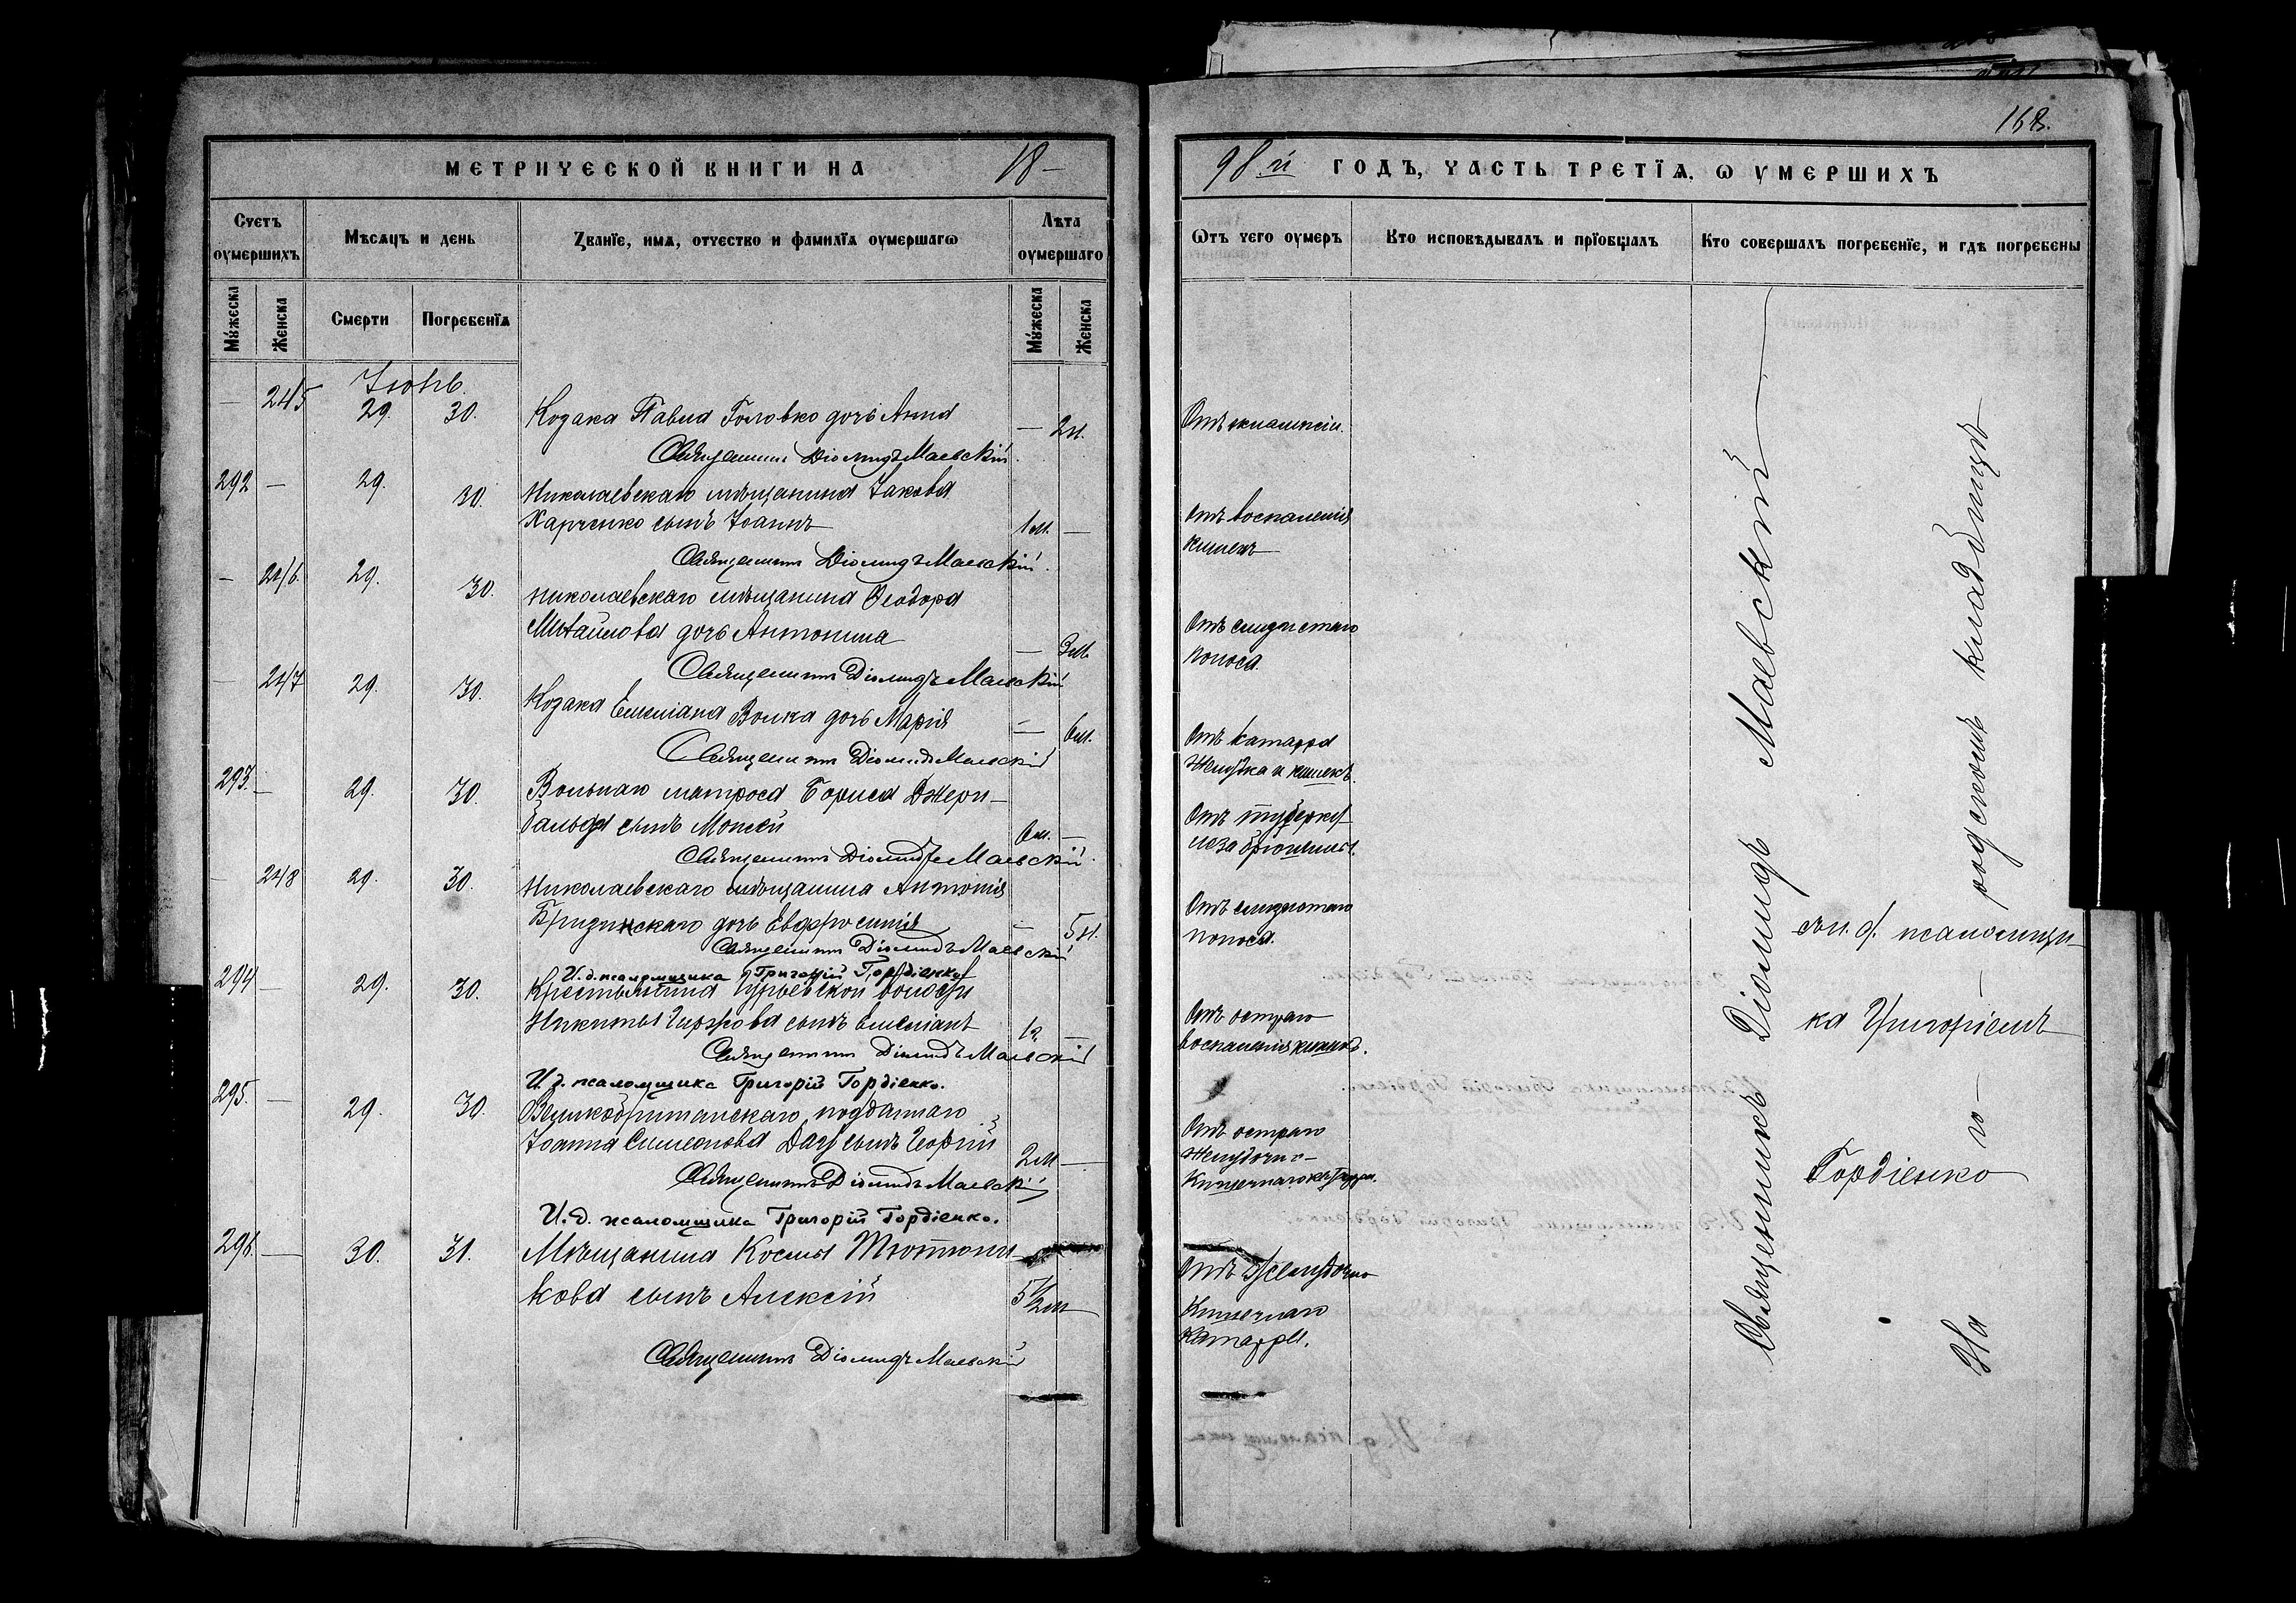 168.
МЕТРИЧЕСКОЙ КНИГИ НА 18-
98й ГОДЪ, ЧАСТЬ ТРЕТІѦ, Ѡ УМЕРШИХЪ
Счетъ оумершихъ
Мѣсяцъ и день
Званїе, имѧ, отчество и фамилїѧ оумершагѡ
Лѣта оумершаго
Отъ чего оумеръ
Кто исповѣдывалъ и прїобщалъ
Кто совершалъ погребенїе, и гдѣ погребены
Мужеска
Женска
Смерти
Погребенїѧ
Мужеска
Женска
Іюнь.
— 245 29. 30. Козака Павла Головко дочь Анна — 2м.
Священникъ Діомидъ Маевскій
292 — 29. 30. Николаевскаго мѣщанина Іакова
Харченко сынъ Іоаннъ 1м. —
Отъ воспаленія
кишекъ
Священникъ Діомидъ Маевскій.
— 246. 29. 30. Николаевскаго мѣщанина Ѳеодора
Михайлова дочь Антонина — 3м.
Отъ слизистаго
поноса.
Священникъ Діомидъ Маевскій
— 247 29. 30. Козака Емиліана Волка дочь Марія — 6м.
Отъ катарра
желудка и кишекъ.
Священникъ Діомидъ Маевскій
293. — 29. 30. Вольнаго матроса Бориса Джери-
бальда сынъ Моисей 6м. —
Отъ туберку-
леза брюшины.
Священникъ Діомидъ Маевскій.
— 248 29. 30. Николаевскаго мѣщанина Антонія
дочь Евфросинія — 5м.
Отъ слизистаго
поноса.
Священникъ Діомидъ Маевскій
И. д. псаломщика Григорій Гордіенко
294 — 29. 30. Крестьянина Гурьевской волости
Никиты сынъ Емиліанъ 1г. —
Отъ остраго
воспаленія кишекъ.
Священникъ Діомидъ Маевскій
И. д. псаломщика Григорій Гордіенко.
295. — 29. 30. Великобританскаго подданнаго
Іоанна Симеонова сынъ Георгій 2м —
Отъ остраго
желудочно-
кишечнаго катарра.
Священникъ Діомидъ Маевскій
И. д. псаломщика Григорій Гордіенко.
296. — 30. 31. Мѣщанина Космы Тютюни-
кова сынъ Алексій 5½м —
Отъ желудочно
кишечнаго
катарра.
Священникъ Діомидъ Маевскій
Священникъ Діомидъ Маевскій
съ и. д. псаломщи-
ка Григоріемъ
Гордіенко
На го-
родскомъ кладбищѣ